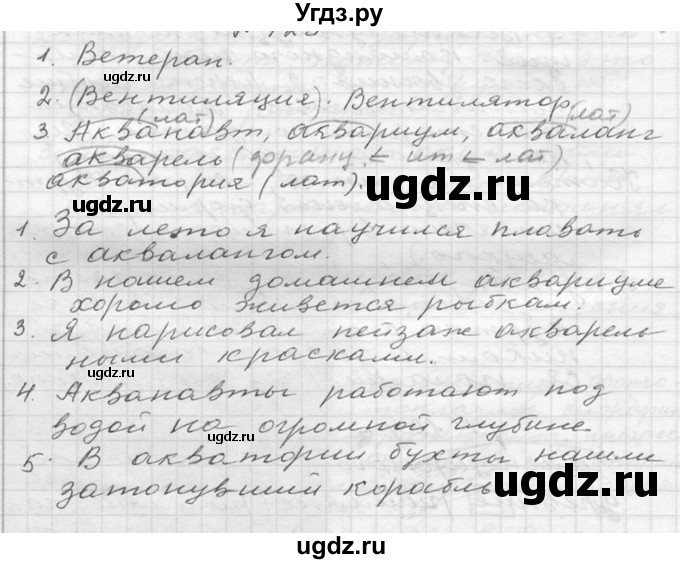 Угдз.ру
1. Ветеран.
ugdz.ru
2. (Вентиляция). Вентилятор.
(лат) (лат)
3 Акванавт, аквариум, акваланг
акварель (дорану ⊱ ит ⊱ лат)
акватория (лат). ugdz.ru
ugdz.ru
1. За лето я научился плавать
с аквалангом.
2. В нашем домашнем аквариуме
ugdz.ru
хорошо живется рыбкам.
3. Я нарисовал пейзаж акварель
ugdz.ru
ными красками.
4. Акванавты работают под
водой на огромной глубине.
ugdz.ru
5. В акватории бухты нашли
затонувший корабль ugdz.ru
ugdz.ru